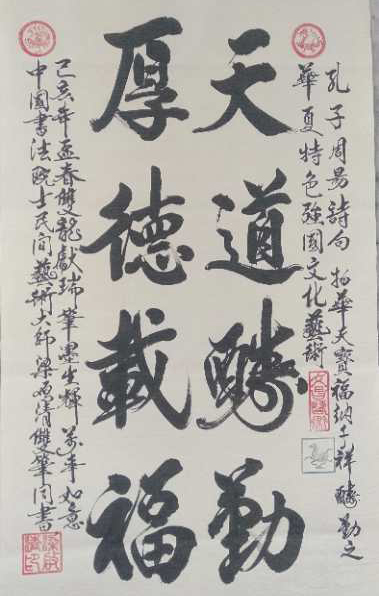 孔子周易詩句 物華天寶福納千祥 酬勤之
華夏特色強國文化藝術
天道酬勤
厚德載福
己亥年孟春雙龍獻瑞筆墨生輝 萬事如意
中國書法院士民间藝術大師梁 清雙筆同書